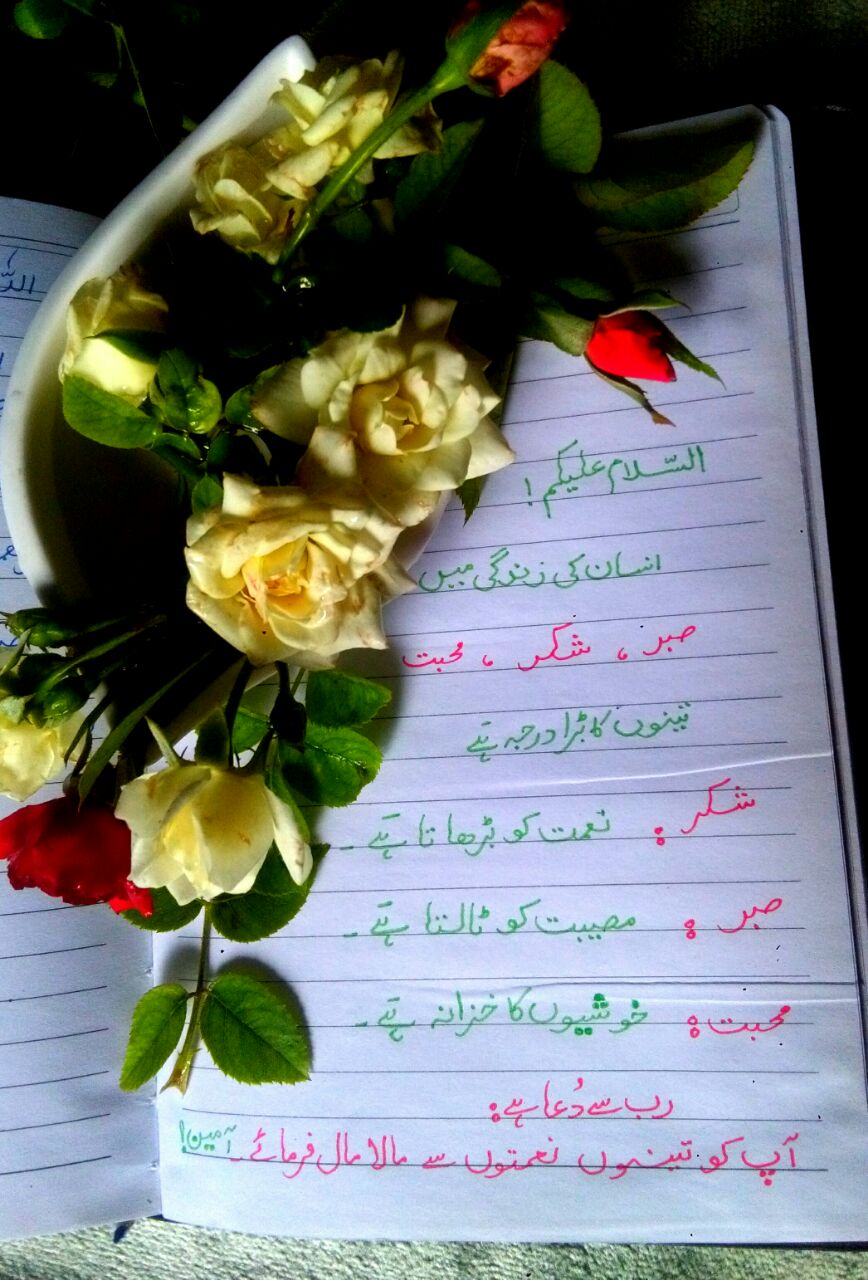 السّلام علیکم!
انسان کی زندگی میں
صبر ، شکر ، محبت
تینوں کا بڑا درجہ ہے
شکر : نعمت کو بڑھاتا ہے ۔
صبر : مصیبت کو ٹالتا ہے ۔
محبت : خوشیوں کا خزانہ ہے ۔
رب سے دُعا ہے :
آپ کو تینوں نعمتوں سے مالا مال فرمائے ۔ آمین!